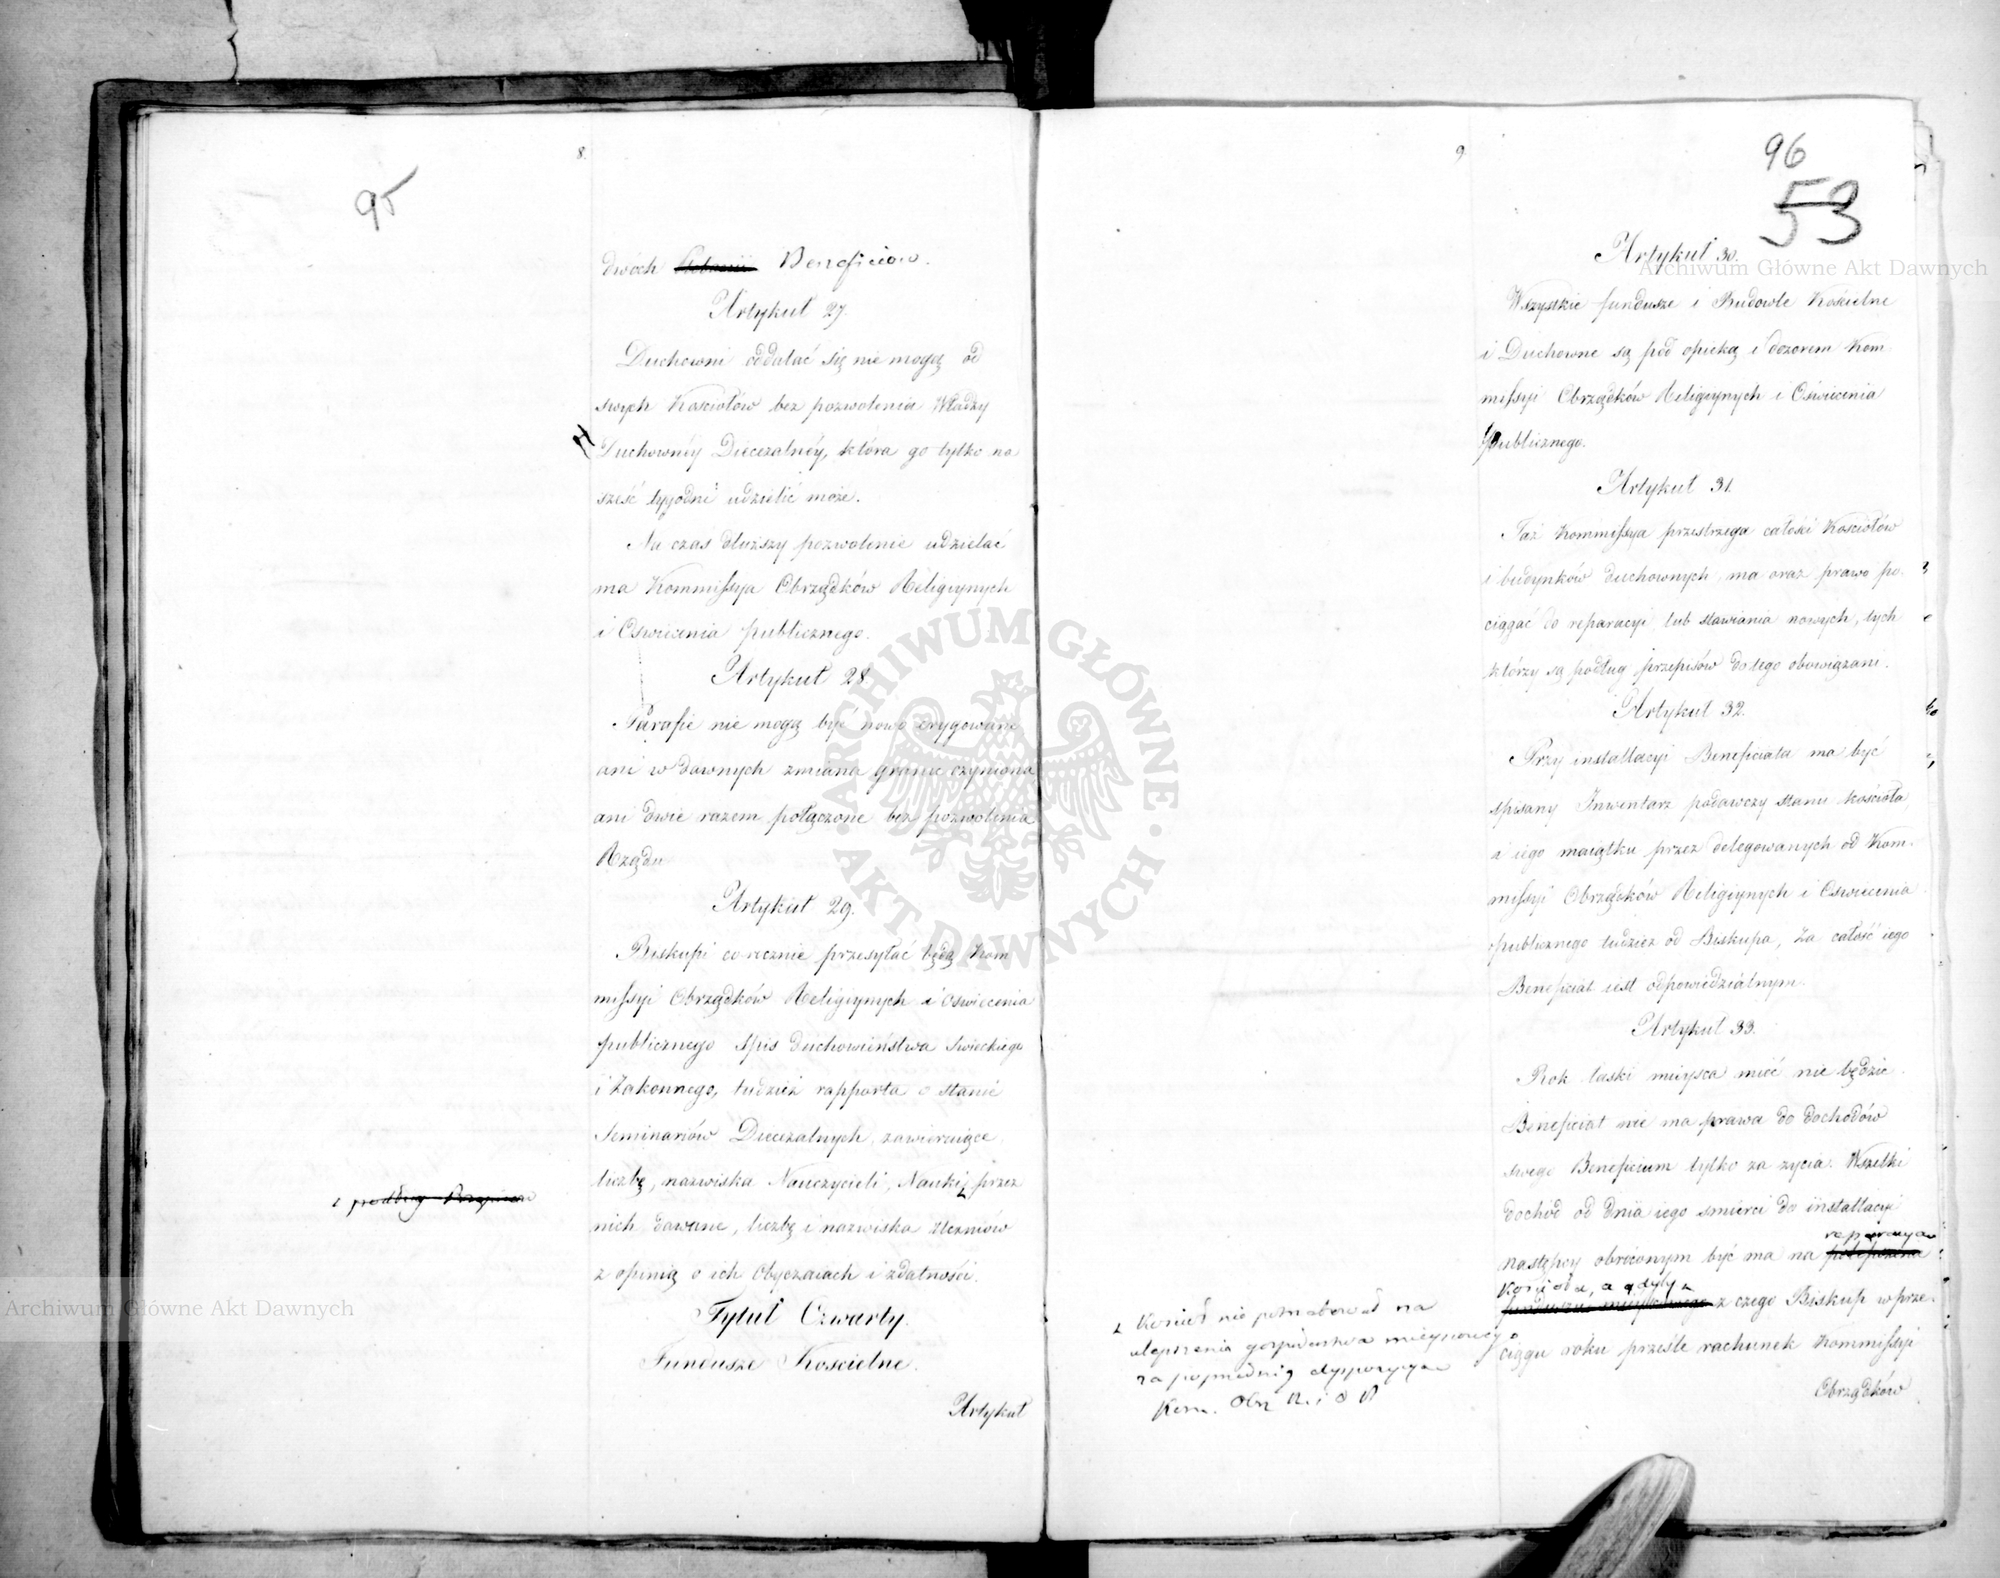 8.
95
dwóch Plebanii Beneficiow.
Artykuł 27.
Duchowni oddalać się nie mogą od
swych Kościołów bez pozwolenia Władzy
Duchownéy Diecezalnéy, która go tylko na
sześć tygodni udzielić może.
Na czas dłuższy pozwolenie udzielać
ma Kommissya Obrządków Religiynych
i Oświecenia publicznego.
Artykuł 28.
Parafie nie mogą być nowo erygowane
ani w dawnych zmiana granic czyniona
ani dwie razem połączone bez pozwolenia
Rządu
Artykuł 29.
Biskupi corocznie przesyłać będą Kom
missyi Obrządków Religiynych i Oświecenia
publicznego Spis Duchowieństwa Swieckiego
i Zakonnego, tudzież rapporta o stanie
Seminariów Diecezalnych, zawieraiące
liczbę, nazwiska Nauczycieli, Nauki przez
nich dawane, liczbę i nazwiska Uczniów
z opinią o ich Obyczaiach i zdatności.
podług Przepisów
Tytuł Czwarty.
Fundusze Kościelne.
Artykuł
9
96
53
Artykuł 30.
Wszystkie fundusze i Budowle Kościelne
i Duchowne są pod opieką i dozorem Kom
missyi Obrządków Religiynych i Oświecenia
Publicznego.
Artykuł 31.
Taż Kommissya przestrzega całości Kościołów
i budynków duchownych, ma oraz prawo po-
ciągać do reparacyi lub stawiania nowych, tych
którzy są podług przepisów do tego obowiązani.
Artykuł 32.
Przy installacyi Beneficiata ma być
spisany Inwentarz podawczy stanu Kościoła,
i iego maiątku przez delegowanych od Kom-
missyi Obrządków Religiynych i Oświecenia
publicznego tudzież od Biskupa, Za całość iego
Beneficiat iest odpowiedzialnym.
Artykuł 33.
Rok łaski mieysca mieć nie będzie.
Beneficiat nie ma prawa do dochodów
swego Beneficium tylko za życia. Wszelki
dochód od dnia iego śmierci do installacyi
następcy obróconym być ma na
reparacyą
Kościoła, a gdyby
z czego Biskup w prze-
ciągu roku prześle rachunek Kommissyi
Obrządków
Kościół nie potrzebował na
ulepszenia gospodarstwa mieyscowego
za poprzednią dyspozycyą
Kom. Obr R. i O P
Archiwum Główne Akt Dawnych
Archiwum Główne Akt Dawnych
ARCHIWUM GŁÓWNE · AKT DAWNYCH ·